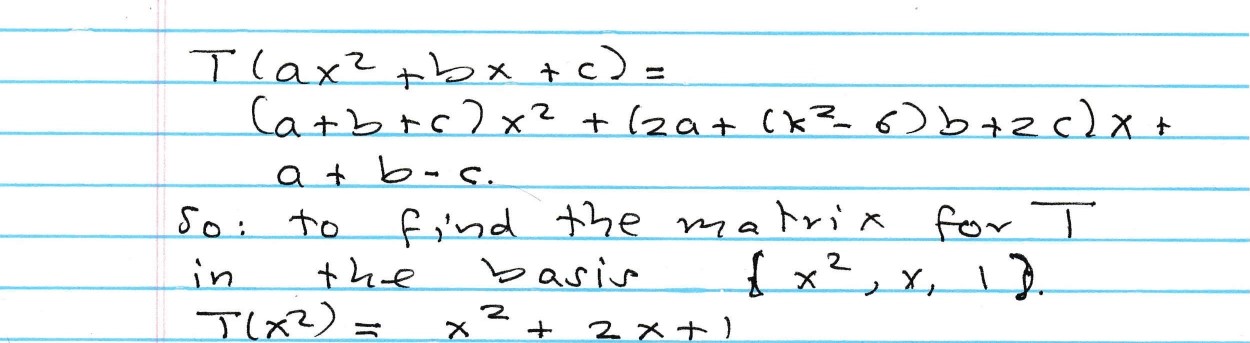 T(ax² + bx + c) =
(a+b+c)x² + (2a + (k²-6)b+2c)x +
a + b - c.
So: to find the matrix for T
in the basis {x², x, 1}.
T(x²) = x² + 2x+1